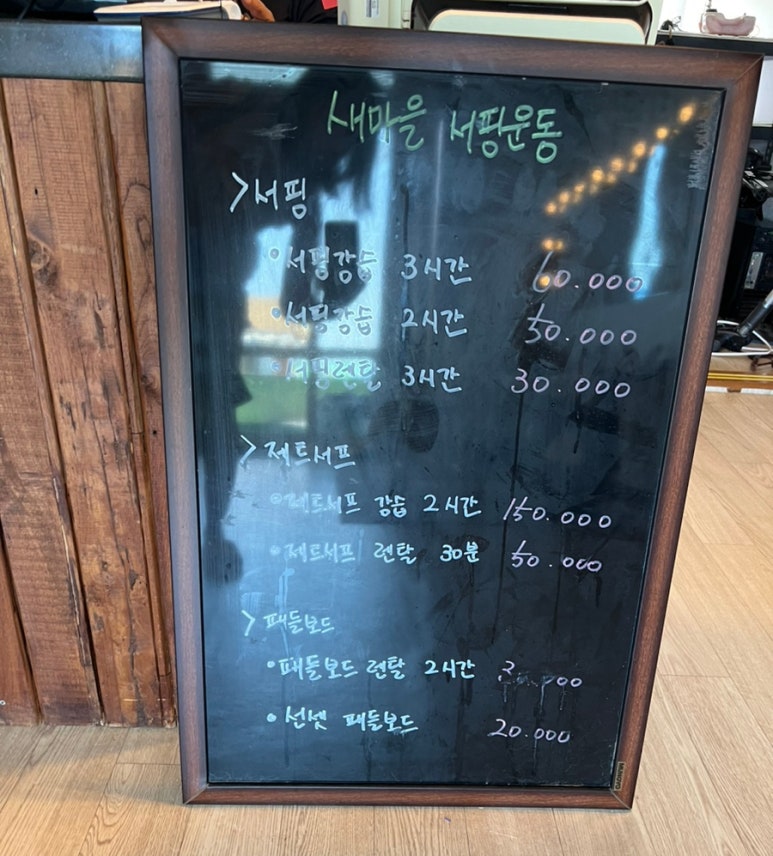 새마을 서핑운동
>서핑
•서핑강습 3시간 60.000
•서핑강습 2시간 50.000
•서핑렌탈 3시간 30.000
>제트서프
•제트서프 강습 2시간 150.000
•제트서프 렌탈 30분 50.000
>패들보드
•패들보드 렌탈 2시간
•선셋 패들보드 20.000